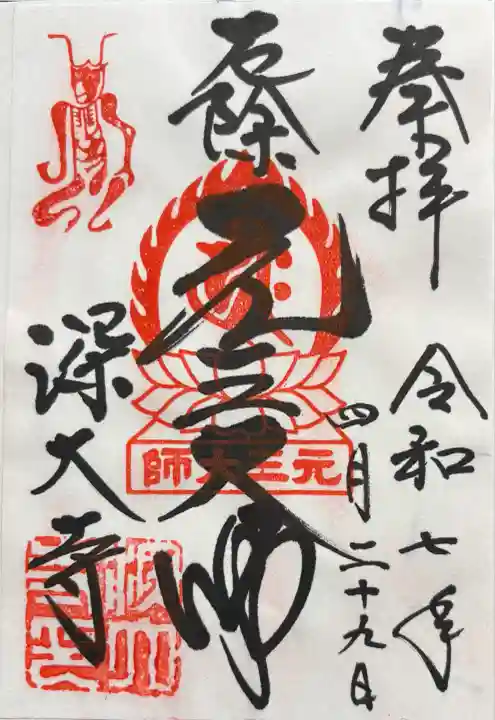 奉拝
令和七年
四月二十九日
厄除
元三大師
元三大師
深大寺